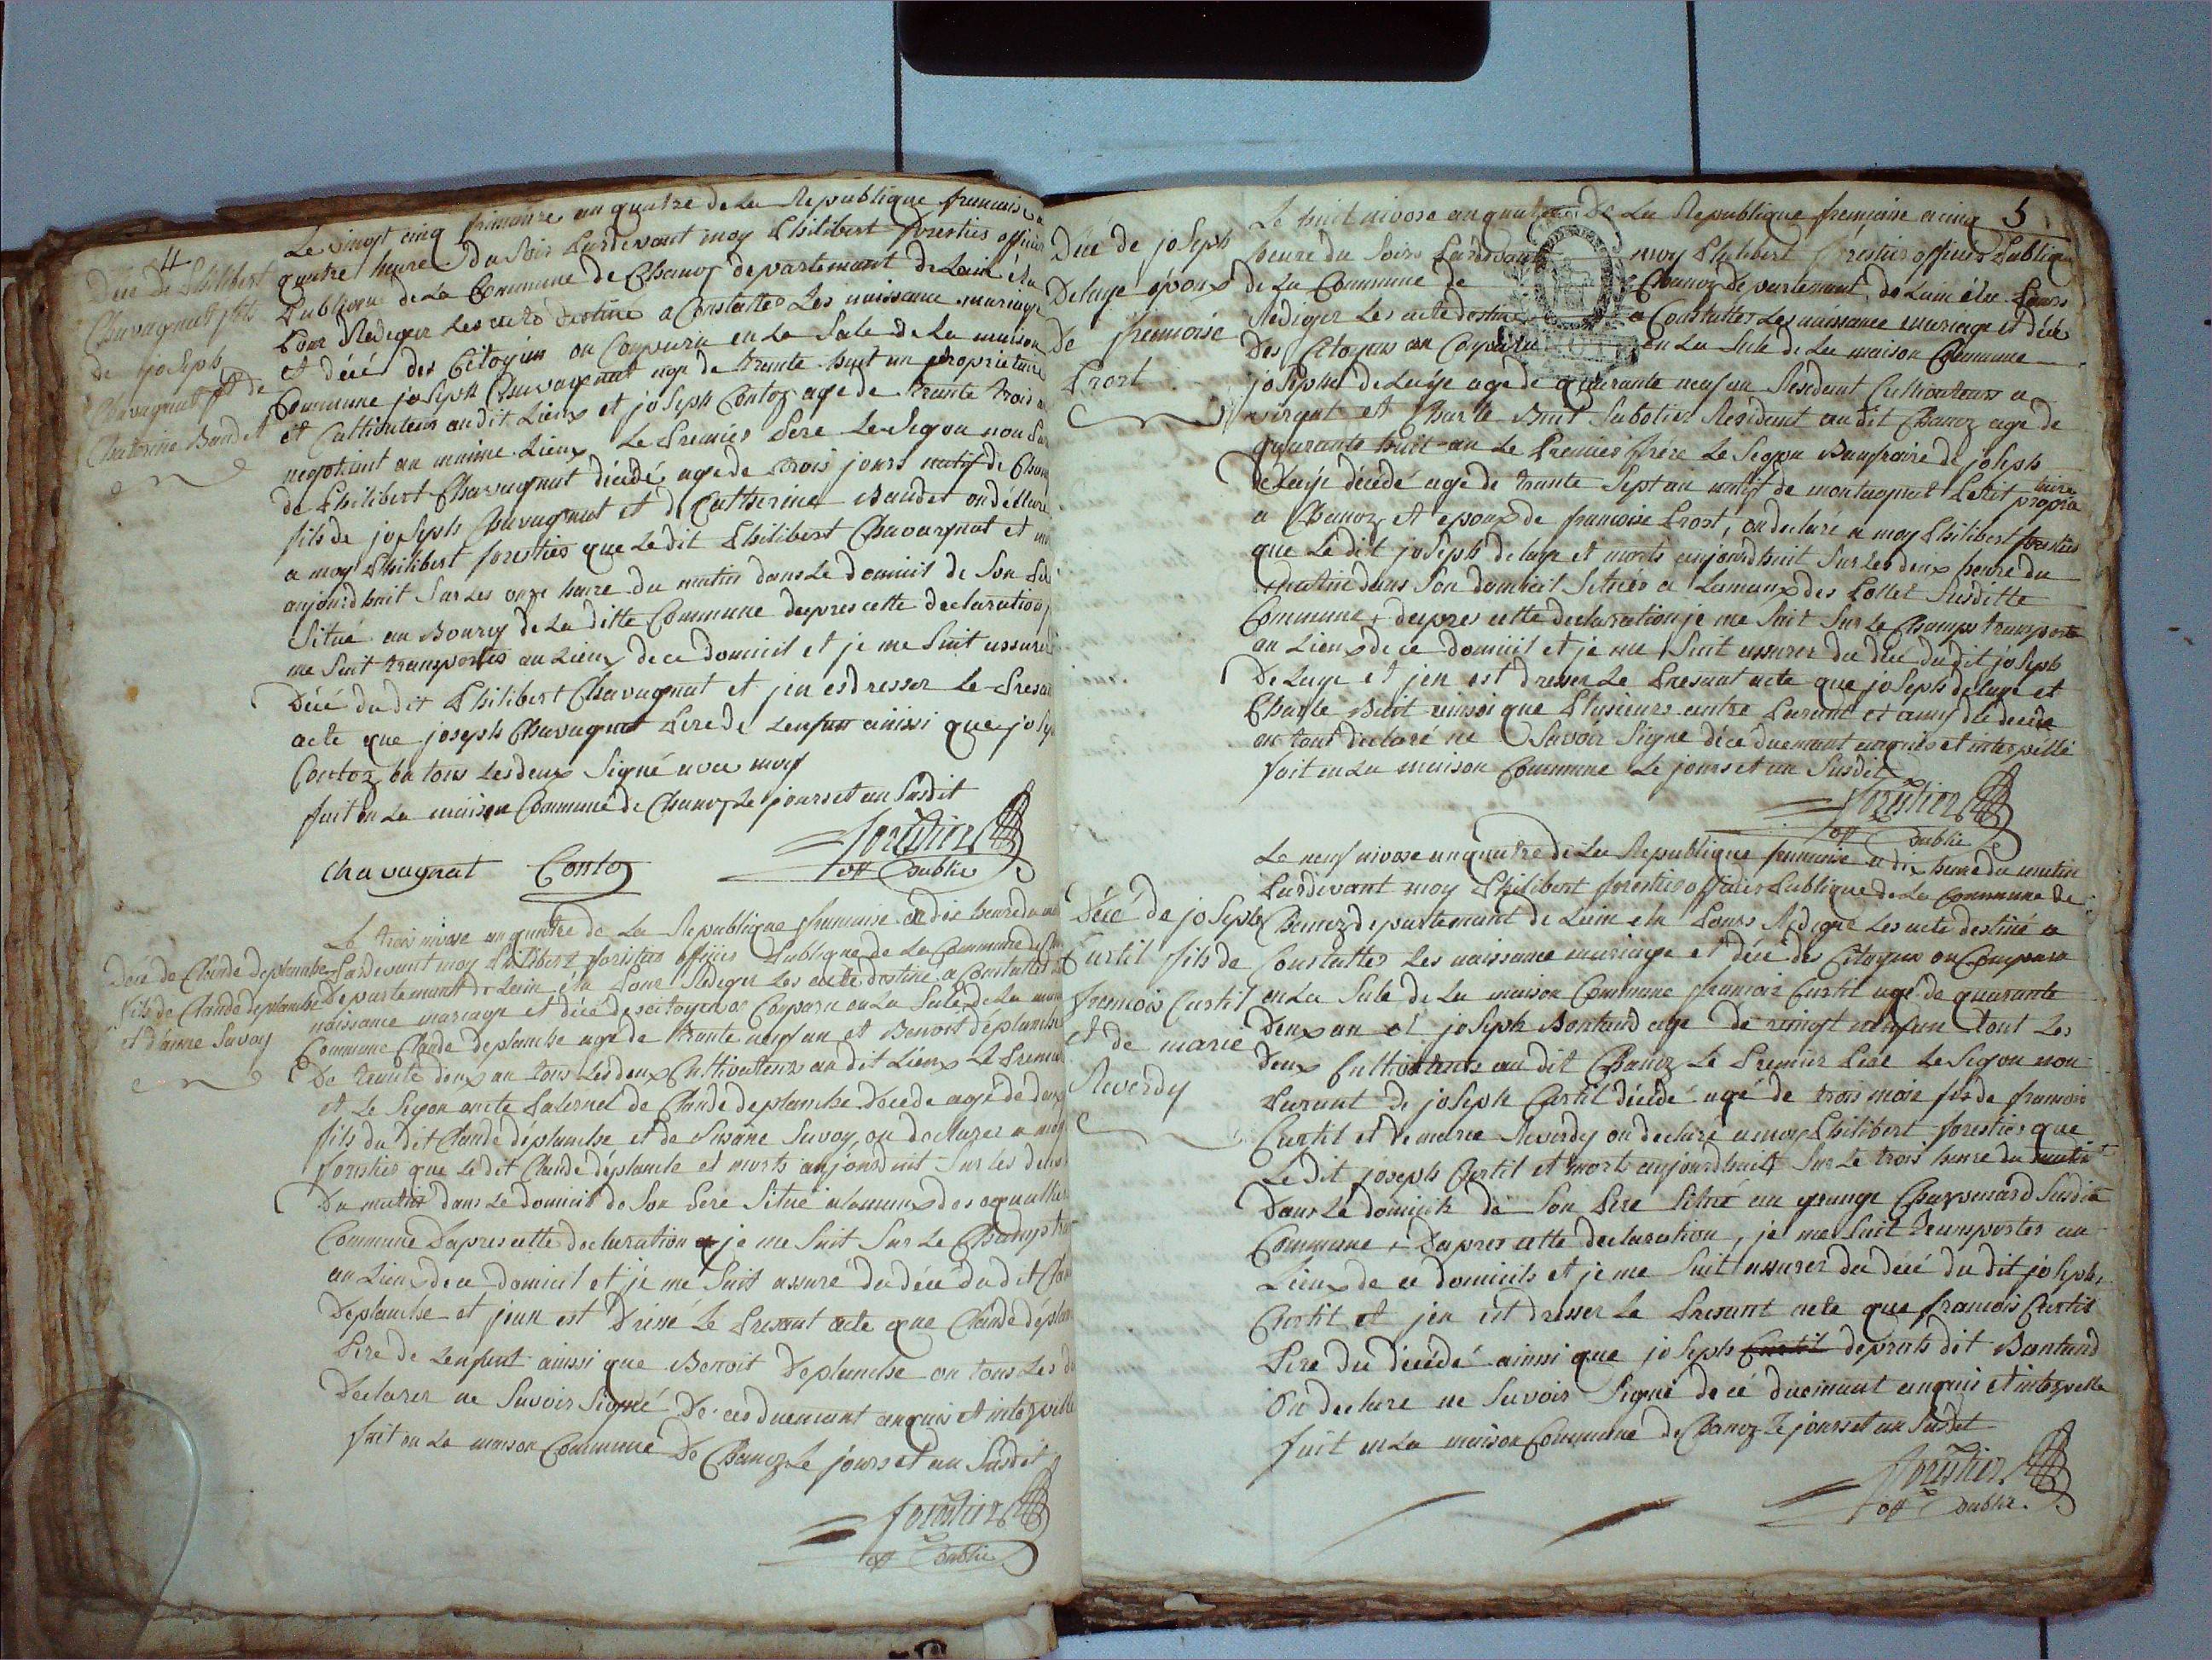 4
Décé de Philibert
Chavagnat fils
de joseph
Chavagnat et de
Chaterine Baudet
Le vingt cinq frimaire an quatre de La Republique francaise a
quatre heure du Soir Pardevant moy Philibert forestier officier
Publique de La Commune de Chanoz departemant de Lain élu
Pour Rediger Les acte destiné a Constatter Les naissance mariage
et décé des Citoyens on Comparu en La Sale de La maison
Commune joseph Chavagnat age de trante huit an proprietaire
et Cultivateur audit Lieux et joseph Contoz age de trante trois an
negotiant au maime Lieux Le Premier Pere Le Segon non Par
de Philibert Chavagnat décédé age de trois jours natif de Chan
fils de joseph Chavagnat et de Catherine Baudet on déclaré
a moy Philibert forestier que Le dit Philibert Chavagnat et mo
aujourdhuit Sur Les onze heure du matin dans Le domicil de Son Pere
Situé au Bourg de La ditte Commune dapres cette declaration je
me Suit transportes au Lieux de ce domicil et je me Suit assurer
Décé du dit Philibert Chavagnat et jen es dresser Le Presant
acte que joseph Chavagnat Pere de Lenfant ainssi que joseph
Contoz on tous Les deux Signé avec moy
fait en La maison Commune de Chanoz Le jours et an Susdit
Chavagnat Contoz forestier
off Public
Décé de Claude deplanche
fils de Claude deplanche
et daine Savoy
Le trois nivose an quatre de La Republique francaise a dix heure du ma
Pardevant moy Philibert forestier officier Publique de La Commune de Cha
Departemant de Lain élu Pour Rediger Les acte destiné a Constatter Les
naissance mariage et décé des citoyens on Comparu en La Sale de La mais
Commune Claude deplanche age de trante neuf an et Benoit déplanche
De trante deux an tous Les deux Cultivateurs au dit Lieux Le Premier
et Le Segon oncle Paternel de Claude deplanche Décédé age de deux
fils du dit Claude déplanche et de Susane Savoy on declarer a moy
forestier que Le dit Claude déplanche et morts aujourduit Sur Les deux
Du matin dans Le domicil de Son Pere Situé alamaux des
Commune Dapres cette declaration je me Suit Sur Le Champs tra
au Lieux de ce domicil et je me Suit assuré du décé du dit Clau
Deplanche et jean est Dressé Le Presant acte que Claude déplan
Pere de Lenfant ainssi que Benoit Deplanche on tous Les de
Declarer ne Savoir Signé De ces duemant anquis et interpellé
fait en La maison Commune De Chanoz Le jours et an Susdit
forestier
off Public
5
Décé de joseph
Delaye époux
De francoise
Prost
Le huit nivose an quatre De La Republique francaise a cinq
heure du Soirs Pardevant moy Philibert forestier officier Publique
de La Commune de Chanoz departemant de Lain élu Pours
Rediger Les acte destiné a Constatter Les naissance mariage et décé
Des Citoyens on Comparu en La Sale de La maison Commune
josephet de Laye age de quarante neuf an Residant Cultivateurs a
et Charle Buit Sabotier Residant au dit Chanoz age de
quarante huit an Le Premier frére Le Segon Baufraire de joseph
de Laye décédé age de trante Sept an natif de montagnat Letit propriétaire
a Chanoz et epoux de francoise Prost, on declaré a moy Philibert forestier
que Le dit joseph delaye et morts aujourdhuit Sur Les deux heure du
matine dans Son domicil Situes a Lamaux des Pollet Susditte
Commune, dapres cette declaration je me Suit Sur Le Champs transporté
au Lieux de ce domicil et je me Suit assurer du décé du dit joseph
De Laye et jen est dresser Le Presant acte que joseph delaye et
Charle Buit ainssi que Plusieurs autre Parant et amy du décédé
on tous declaré ne Savoir Signe déce duemant anquis et interpellé
fait en La maison Commune Le jours et an Susdit
forestier
off Public
Décé de joseph
Curtil fils de
francois Curtil
et de marie
Reverdy
Le neuf nivose an quatre de La Republique francaise a dix heure du matin
Pardevant moy Philibert forestier officier Publique de La Commune de
Chanoz departemant de Lain élu Pours Rediger Les acte destiné a
Constatter Les naissance mariage et décé des Citoyens on Comparu
en La Sale de La maison Commune francois Curtil age de quarante
Deux an et joseph Bontaud age de vingt neuf an tout Les
Deux Cultivateurs au dit Chanoz Le Premier Pere Le Segon non
Parant de joseph Curtil décédé agé de trois mois fis de francois
Curtil et de marie Reverdy on declaré a moy Philibert forestier que
Le dit joseph Curtil et morts aujourdhuit Sur Le trois heure du matin
Dans Le domicils de Son Pere Situé au grange Charpenard Susdite
Commune, Dapres cette declaration, je me Suit transportes au
Lieux de ce domicils et je me Suit assurer du décé du dit joseph,
Curtil et jen est dresser Le Presant acte que francois Curtil
Pere du décédé ainssi que joseph Curtil deprats dit Bontaud
On declare ne Savoir Signé de cé duemant anquis et interpelle
fait en La maison Commune de Chanoz Le jours et an Susdit
forestier
off Public